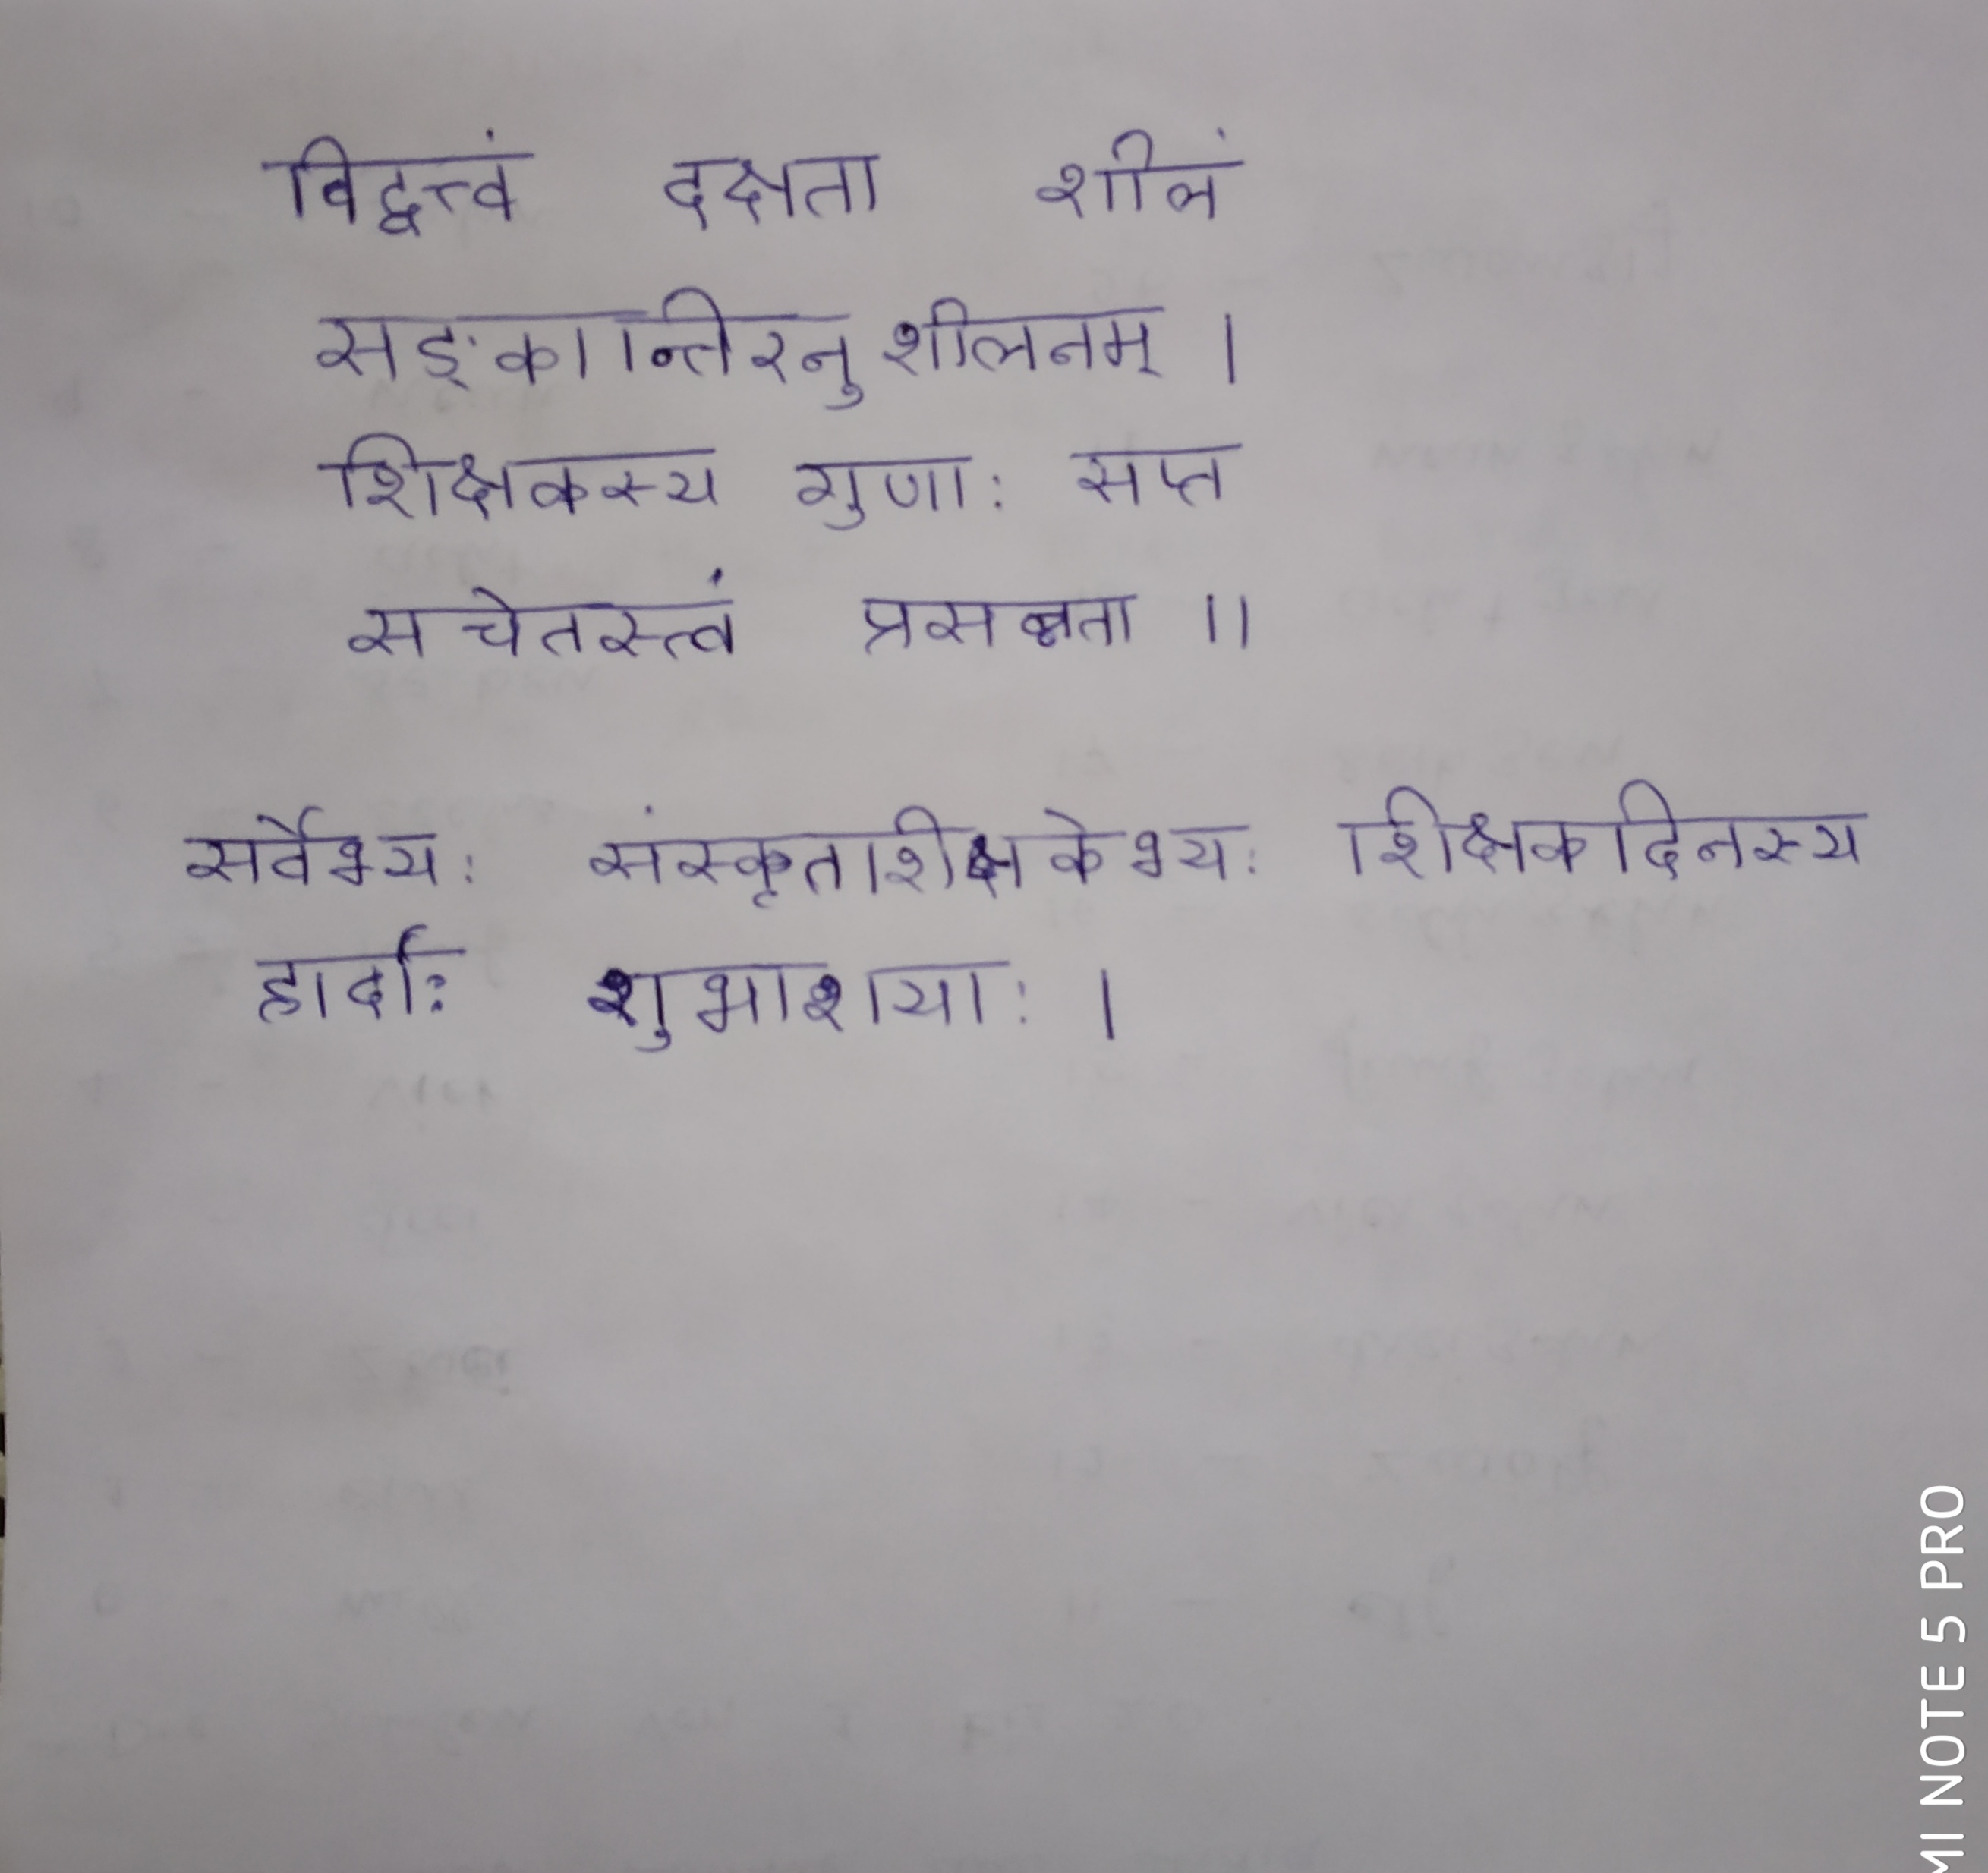 विद्वत्त्वं दक्षता शीलं
सङ्कान्तिरनुशीलनम् ।
शिक्षकस्य गुणाः सप्त
सचेतस्त्वं प्रसन्नता ।।
सर्वेभ्यः संस्कृतशिक्षकेभ्यः शिक्षकदिनस्य
हार्दाः शुभाशयाः ।
MI NOTE 5 PRO